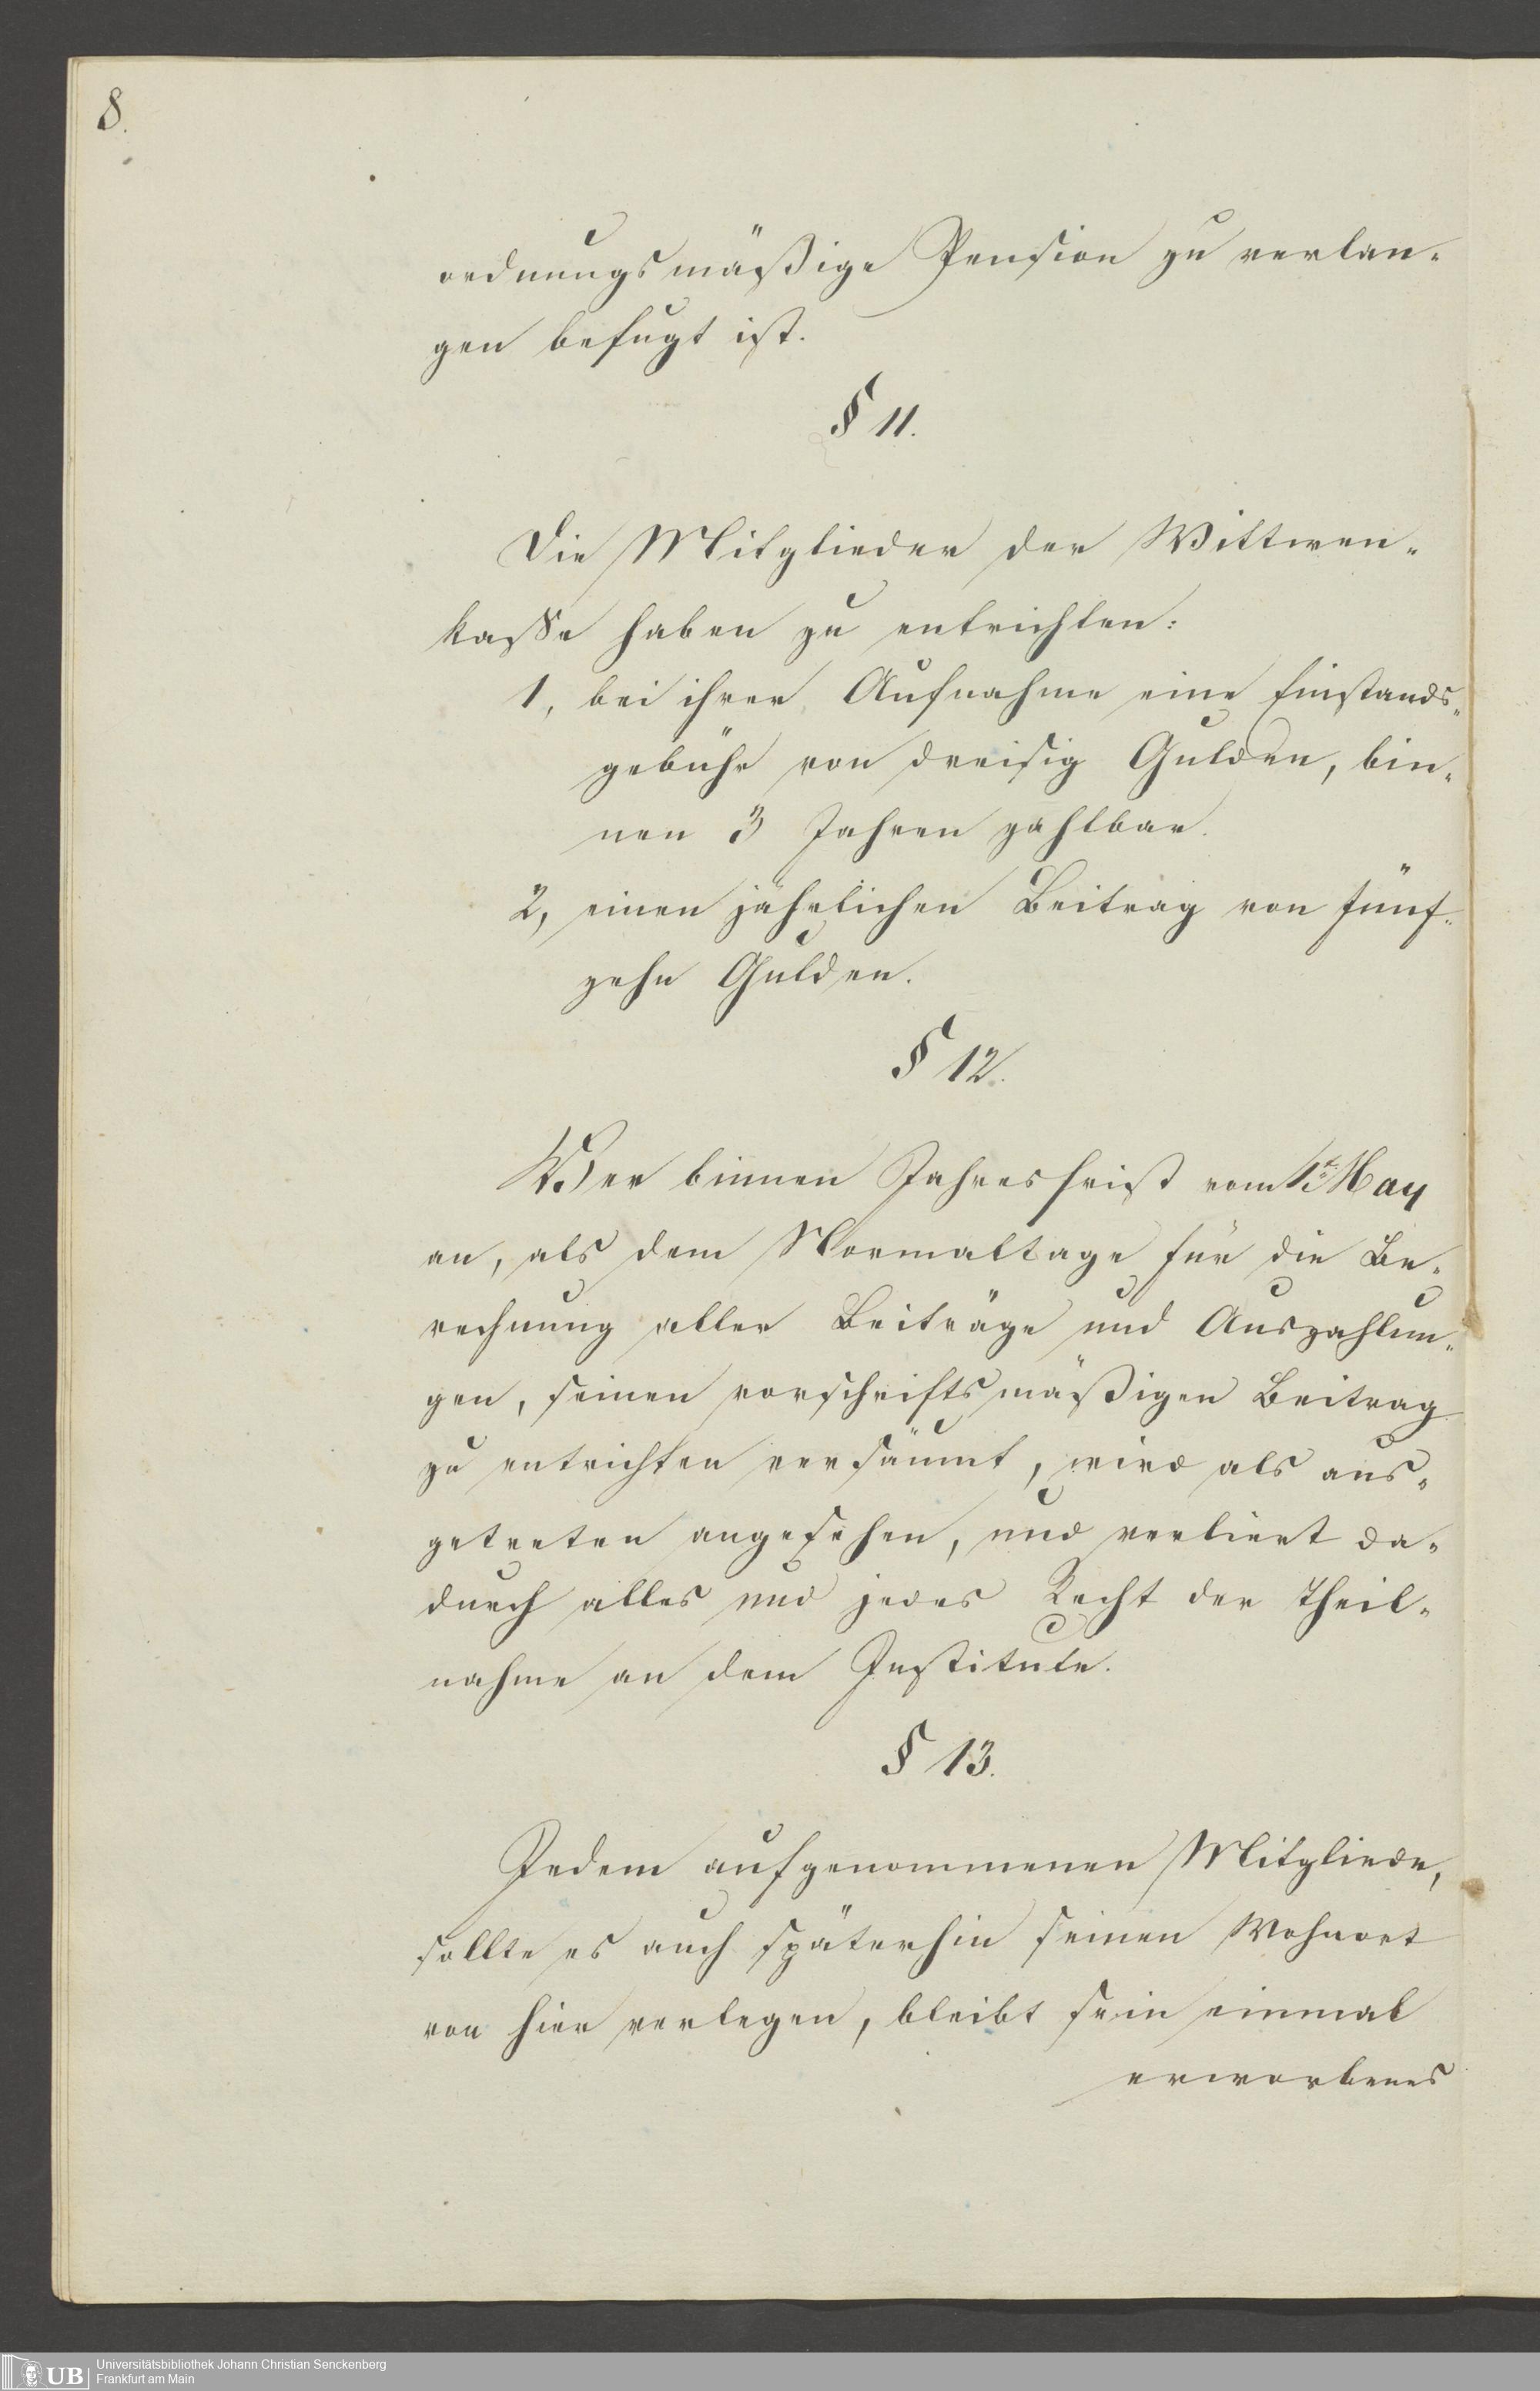 8.
ordnungsmäßige Pension zu verlan-
gen befugt ist.
§ 11.
Die Mitglieder der Wittwen-
kasse haben zu entrichten:
1, bei ihrer Aufnahme eine Einstands-
gebühr von dreisig Gulden, bin-
nen 3 Jahren zahlbar.
2, einen jährlichen Beitrag von fünf-
zehn Gulden.
§ 12.
Wer binnen Jahresfrist vom 1t. May
an, als dem Normaltage für die Be-
rechnung aller Beiträge und Auszahlun-
gen, seinen vorschriftsmäßigen Beitrag
zu entrichten versäumt, wird als aus-
getreten angesehen, und verliert da-
durch alles und jedes Recht der Theil-
nahme an dem Institute.
§ 13.
Jedem aufgenommenen Mitgliede,
sollte es auch späterhin seinen Wohnort
von hier verlegen, bleibt sein einmal
erworbenes
UB
Universitätsbibliothek Johann Christian Senckenberg
Frankfurt am Main